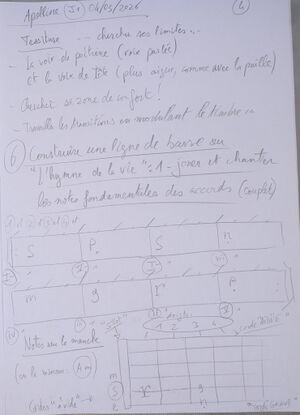 Apolline (J1) 04/03/2026
Tessiture -- chercher ses limites...
- La voix de poitrine (voix parlée)
et la voix de tête (plus aigue, comme avec la paille)
- Chercher sa zone de confort!
- Travailler les transitions en modulant le timbre
⑥ Construire une ligne de basse sur
"L'hymne de la vie": 1 - jouer et chanter
les notes fondamentales des accords (couplet)
S P. S
m g r P.
Notes sur le manche
doigts
1 2 3 4
(Am)
Cordes "à vide" →
m
S r g